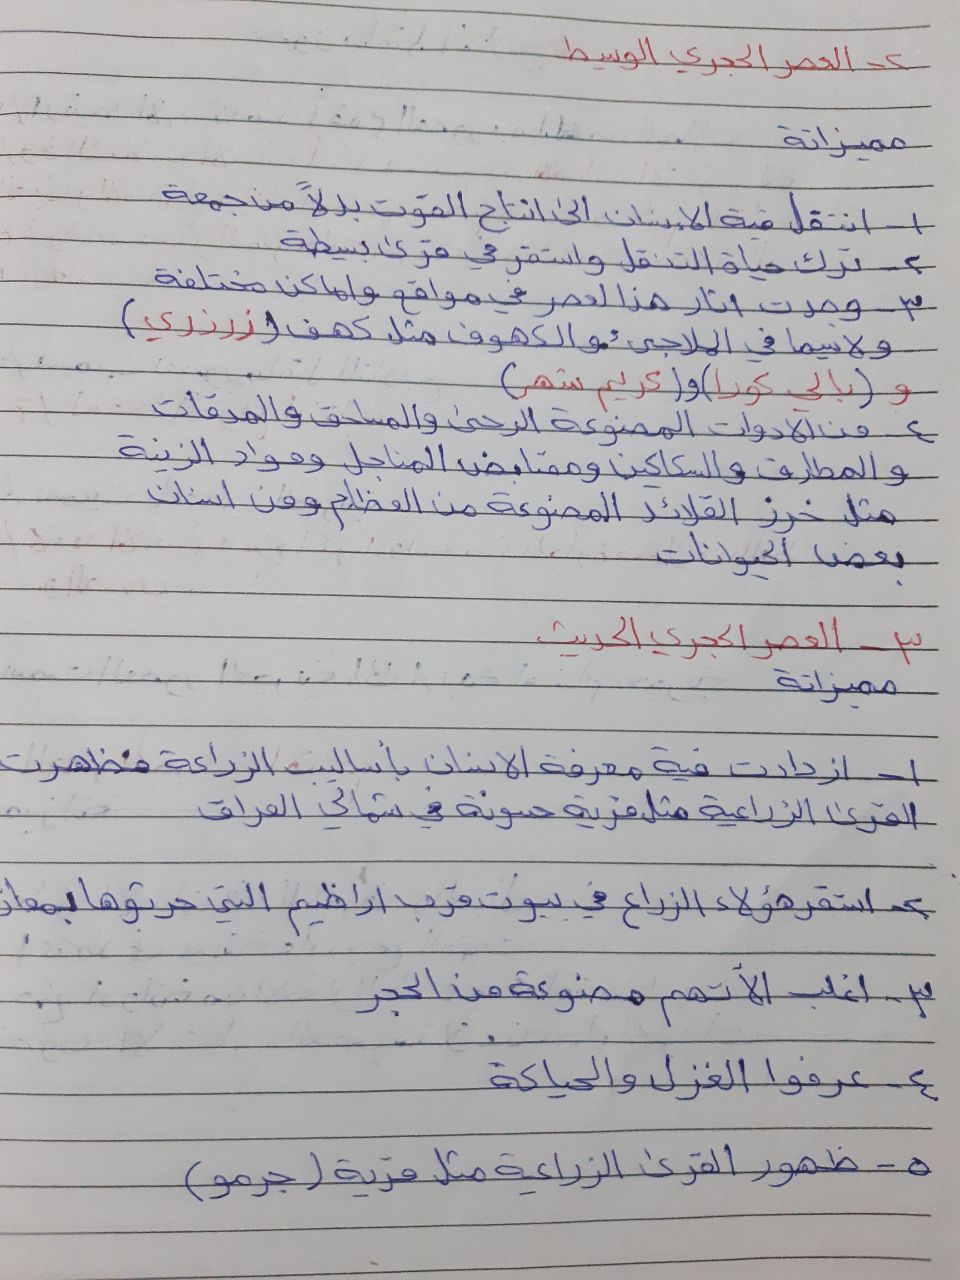 ٢- العصر الحجري الوسيط
مميزاتة
١- انتقل فية الانسان الى انتاج القوت بدلاً من جمعة
٢- ترك حياة التنقل واستقر في قرى بسيطة
٣- وجدت اثار هذا العصر في مواقع واماكن مختلفة
ولاسيما في الملاجىء والكهوف مثل كهف (زرزري)
و (بالي كورا) و (كريم شهر)
٤- من الادوات المصنوعة الرحى والمساحق والمدقات
والمطارق والسكاكين ومقابض المناجل ومواد الزنية
مثل خرز القلائد المصنوعة من العظام ومن اسنان
بعض الحيوانات
٣- العصر الحجري الحديث
مميزاتة
١- ازدادت فية معرفة الانسان بأساليب الزراعة فظهرت
القرى الزراعية مثل قرية حسونة في شمالي العراق
٢- استقر هؤلاء الزراع في بيوت قرب اراظيم التي حرثوها
٣- اغلب الأتهم مصنوعة من الحجر
٤- عرفوا الغزل والحياكة
٥- ظهور القرى الزراعية مثل قرية (جرمو)